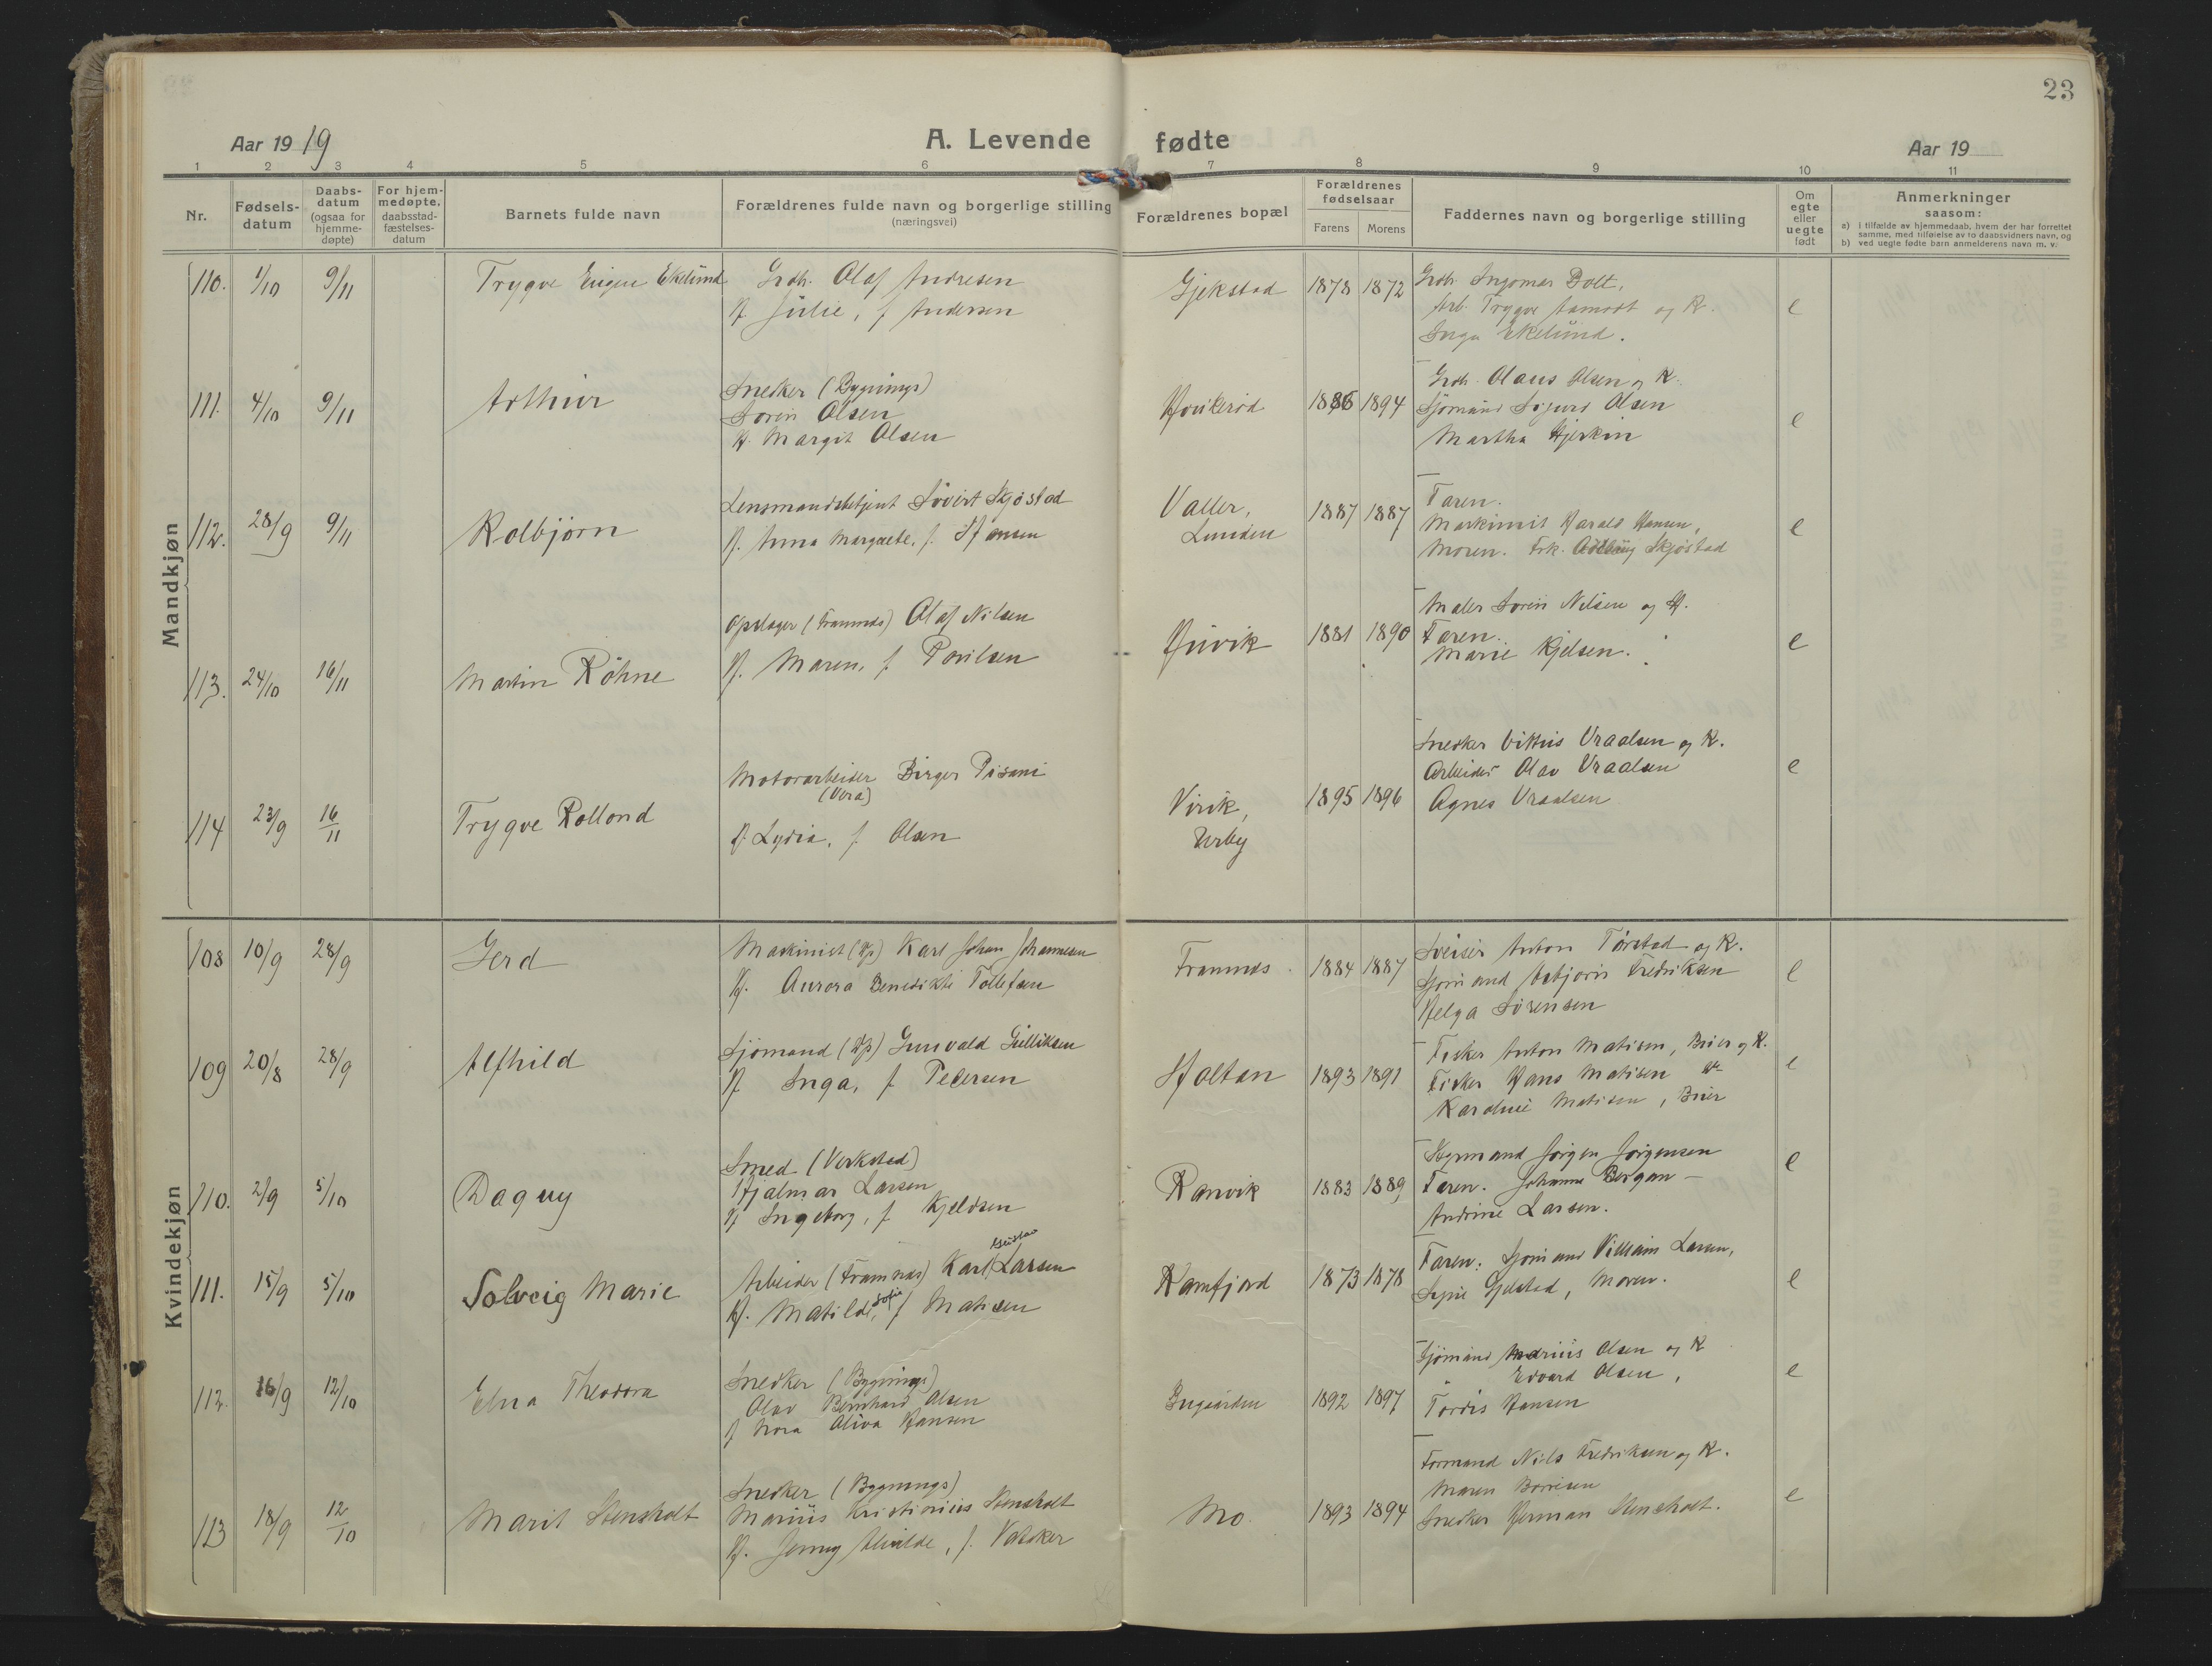 23
Aar 1919
A. Levende fødte
Aar 19
1 2 3 4 5 6 7 8 9 10 11
Nr.
Fødsels-
datum
Daabs-
datum
(ogsaa for
hjemme-
døpte)
For hjem-
medøpte,
daabsstad-
fæstelses-
datum
Barnets fulde navn
Forældrenes fulde navn og borgerlige stilling
(næringsvei)
Forældrenes bopæl
Forældrenes
fødselsaar
Farens Morens
Faddernes navn og borgerlige stilling
Om
egte
eller
uegte
født
Anmerkninger
saasom:
a) i tilfælde av hjemmedaab, hvem der har forrettet
samme, med tilføielse av to daabsvidners navn, og
b) ved uegte fødte barn anmelderens navn m. v.
Mandkjøn
110. 1/10 9/11 Trygve Eugen Ekelund
Grdb. Olaf Andresen
H. Julie, f Andersen
Gjekstad 1878 1872
Grdb. Ingomar Bolt,
Arb. Trygve Aamodt og K.
Inga Ekelund.
e
111. 4/10 9/11 Arthur
Snedker (Bygnings)
Sorin Olsen
H. Margit Olsen
1886 1894
Grdb. Olaus Olsen og K.
Sjømand Sigurd Olsen
Martha
e
112. 28/9 9/11 Kolbjørn
Lensmandsbetjent Sivert Skjøstad
H. Anna Margrete, f. Hansen
Valler,
Lunden
1887 1887
Faren.
Maskinist Harald Hansen,
Moren. Frk. Skjøstad
e
113. 24/10 16/11 Martin Røhne
Opslager (Framnæs) Olaf Nilsen
H. Maren, f Povilsen
Huvik 1881 1890
Maler Sorin Nilsen og H.
Faren.
Marie Kjelsen.
e
114 23/9 16/11 Trygve Rollond
Motorarbeider Birger Pisani
(Vera)
H Lydia, f. Olsen
Virik,
Verby
1895 1896
Snedker Vraalsen og K.
Arbeider Olav Vraalsen
Agnes Vraalsen
e
Kvindekjøn
108 10/9 28/9 Gerd
Maskinist (Hf) Karl Johan Johannesen
H. Aurora Benedikte Tollefsen
Framnæs 1884 1887
Sveiser Anton Tørstad og K.
Sjømand Asbjørn Fredriksen
Helga Sørensen
e
109 20/8 28/9 Alfhild
Sjømand (Hf) Gunvald Gulliksen
H Inga, f Pedersen
Holtan 1893 1891
Fisker Anton Matisen, Brier og K.
Fisker Hans Matisen
Karoline Matisen, Brier
e
110. 2/9 5/10 Dagny
Smed (Verksted)
Hjalmar Larsen
H Ingeborg, f. Kjeldsen
Ranvik 1883 1889
Styrmand Jørgen Jørgensen
Faren. Johanne Bergan
Andrine Larsen.
e
111. 15/9 5/10 Solveig Marie
Gustav
Arbeider (Framnæs) Karl Larsen
H. Matilde Sofie, f Matisen
Kamfjord 1873 1878
Faren. Sjømand Villiam Larsen,
Signe Gjelstad, Moren.
e
112. 16/9 12/10 Elna Theodora
Snedker (Bygnings)
Olav Bernhard Olsen
H Nora Oliva Hansen
1892 1897
Sjømand Marius Olsen og K
" Edvard Olsen,
Tordis Hansen
e
113 18/9 12/10 Marit Stensholt
Snedker (Bygnings)
Marius Kristinius Stensholt
H. Jenny Alvilde, f. Vatsker
Mo. 1893 1894
Formand Nils Fredriksen og K.
Maren Borrisen
Snedker Herman Stensholt.
e